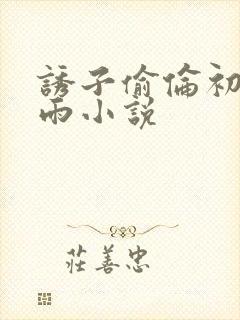 誘子偷倫初
雨小説
莊善忠